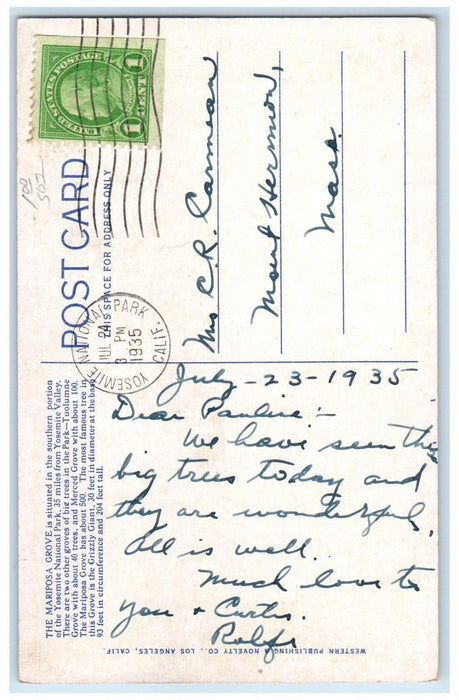 UNITED STATES POSTAGE
1 CENT 1
POST CARD
THIS SPACE FOR ADDRESS ONLY
YOSEMITE NATIONAL PARK
JUL 24
3 PM
1935
CALIF.
Mrs C. R. Carmean
Mount Hermon,
Mass.
THE MARIPOSA GROVE is situated in the southern portion
of the Yosemite National Park, 35 miles from Yosemite Valley.
There are two other groves of big trees in the Park—Tuolumne
Grove with about 40 trees, and Merced Grove with about 100.
The Mariposa Grove has about 500. The most famous tree in
this Grove is the Grizzly Giant, 30 feet in diameter at the base
93 feet in circumference and 204 feet tall.
July-23-1935
Dear Pauline:-
We have seen the
big trees today and
they are wonderful.
All is well.
Much love to
you + Curtis.
Rolfe
WESTERN PUBLISHING & NOVELTY CO., LOS ANGELES, CALIF.